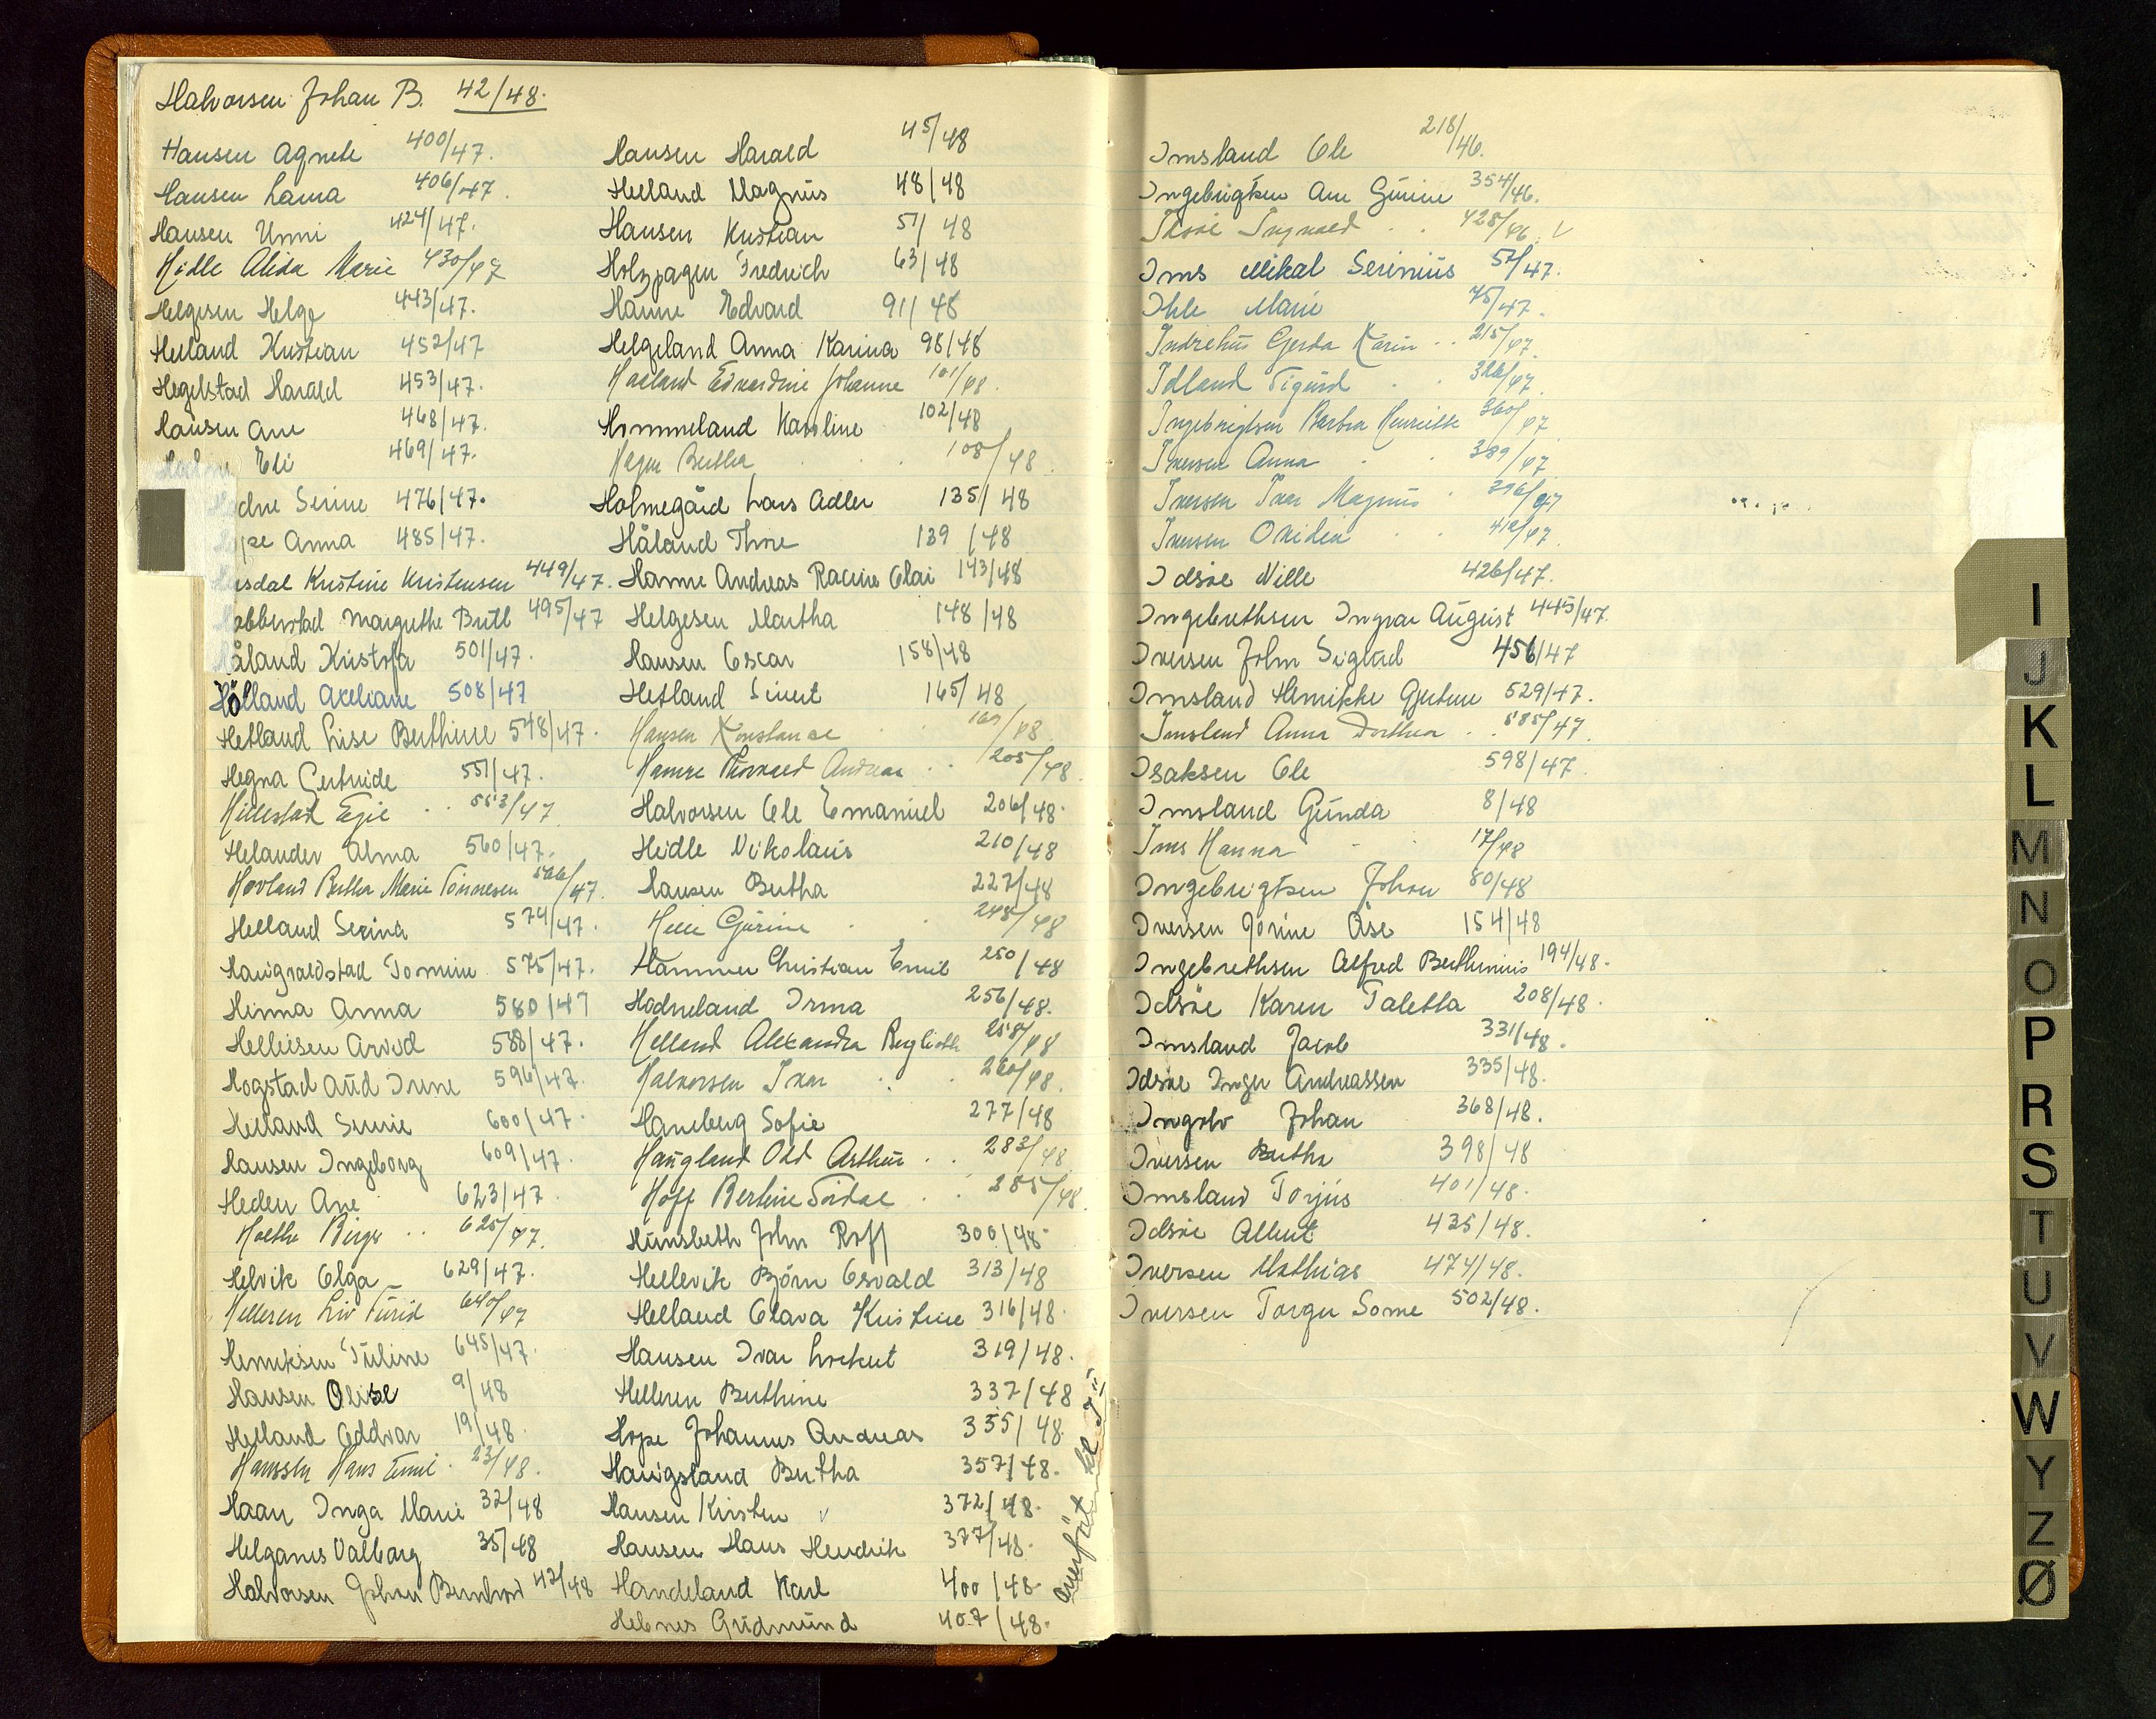 Halvorsen Johan B. 42/48.
Hansen Agnete 400/47.
Hansen Laura 406/47.
Hansen Unni 424/47.
Hidle Alida Marie 430/47
Helgesen Helge 443/47.
Helland Kristian 452/47
Hegelstad Harald 453/47.
Hansen Ane 468/47.
Eli 469/47.
Serine 476/47.
Anna 485/47.
Kristine Kristensen 449/47.
Margrethe 495/47
Håland Kristofa 501/47.
Hölland Axeliane 508/47
Hetland Lise Berthine 548/47.
Hegna Gertruide 551/47.
Hillestad Egie 553/47
Helander Alma 560/47.
Hovland Bertha Marie Tönnesen 566/47.
Helland Serina 574/47.
Haugvaldstad Tomine 575/47.
Hinna Anna 580/47
Helliesen Arvid 588/47.
Hogstad Aud Irene 596/47.
Helland Serine 600/47.
Hansen Ingeborg 609/47.
Heden Ane 623/47
Holthe Birger 625/47.
Helvik Olga 629/47.
Helleren Liv Turid 640/47
Henriksen Tuline 645/47.
Hansen Olise 9/48
Helland Oddvar 19/48.
Hanssen Hans Emil 23/48.
Haan Inga Marie 32/48
Helganes Valborg 35/48
Halvorsen Johan Bernhard 42/48
Hansen Harald 45/48
Helland Magnus 48/48
Hansen Kristian 51/48
Fredrich 63/48
Edvard 91/48
Helgeland Anna Karina 98/48
Haaland Edvardine Johanne 101/48.
Hommeland Karoline 102/48
Hagen Bertha 108/48.
Holmegård Lars Adler 135/48
Håland Thore 139/48
Hanne Andreas Racine Olai 143/48
Helgesen Martha 148/48
Hansen Oscar 158/48
Hetland Sivert 165/48
Hansen Konstanse 169/48
Hamre Thorvald Andreas 205/48.
Halvorsen Ole Emanuel 206/48.
Heidle Nikolaus 210/48
Hansen Bertha 227/48
Helle Gurine 248/48
Hammer Christian Emil 250/48
Hodneland Irma 256/48.
Helland Alexandra 258/48
Halvorsen Ivar 260/48.
Haneberg Sofie 277/48
Haugland Odd Arthur 283/48
Hoff Berline Tordal 285/48.
Hunsbeth John Rolf 300/48.
Hellevik Björn Osvald 313/48
Helland Olava Kristine 316/48.
Hansen Ivar 319/48.
Helleren Berthine 337/48
Hope Johannes Andreas 355/48.
Haugsland Bertha 357/48.
Hansen Kirsten v 372/48.
Hansen Hans Hendrik 377/48.
Handeland Karl 400/48.
Helsnes Gudmund 407/48.
overført til
Imsland Ole 218/46.
Ingebrigtsen Ane Gurine 354/46.
Idsøe Ingvald 428/46. v
Ims Mikal Serinius 52/47.
Ihle Marie 75/47.
Indrehus Gerda Karin 215/47.
Idland Sigurd 326/47.
Ingebrigtsen Barbra Henriette 360/47
Iversen Anna 389/47
Iversen Ivar Magnus 396/47
Iversen Ovidia 412/47
Idsöe Nille 426/47.
Ingebrethsen Ingvar August 445/47.
Iversen John Sigurd 456/47
Imsland Henrikke Gurine 529/47.
Imsland Anna Dorthea 585/47.
Isaksen Ole 598/47
Imsland Gunda 8/48
Ims Hanna 17/48
Ingebrigtsen Johan 80/48
Iversen Jorine Åse 154/48
Ingebrethsen Alfred Berthinius 194/48.
Idsöe Karen Taletta 208/48.
Imsland Jacob 331/48.
Idsöe Inger Andreassen 335/48.
Ingolv Johan 368/48.
Iversen Bertha 398/48
Imsland Torjus 401/48.
Idsöe Albert 435/48.
Iversen Mathias 474/48.
Iversen Torger Some 502/48.
I
J
K
L
M
N
O
P
R
S
T
U
V
W
Y
Z
Ø